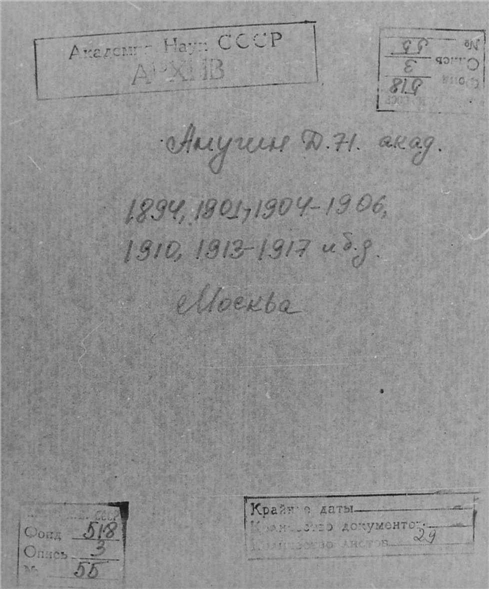 Академия Наук СССР
АРХИВ
№ 55
Опись 3
Фонд 518
Анучин Д.Н. акад.
1894, 1901, 1904-1906,
1910, 1913-1917 и б.д.
Москва
СССР
Фонд 518
Опись 3
№ 55
Крайние даты
Количество документов
Количество листов 29